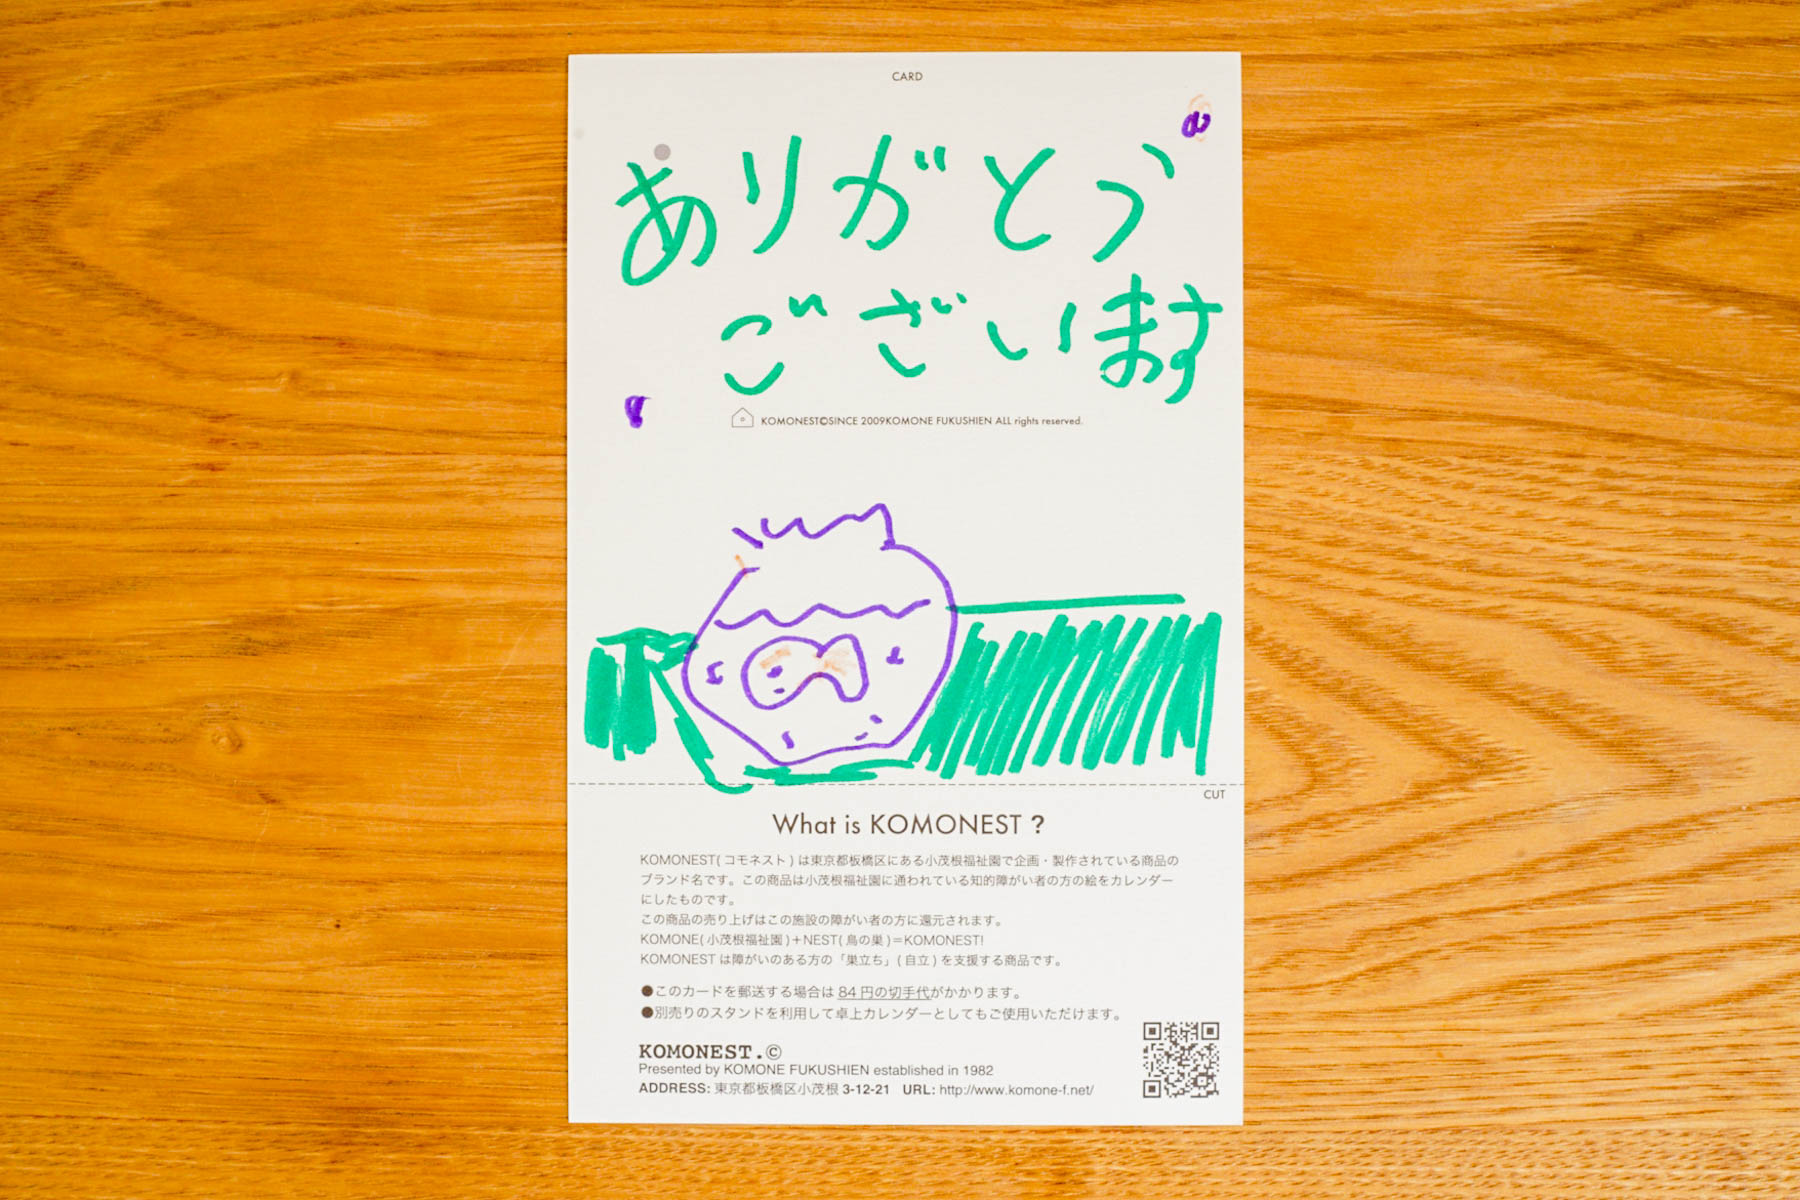 CARD
ありがとう
ございます
KOMONEST©SINCE 2009KOMONE FUKUSHIEN ALL rights reserved.
CUT
What is KOMONEST ?
KOMONEST( コモネスト ) は東京都板橋区にある小茂根福祉園で企画・製作されている商品の
ブランド名です。この商品は小茂根福祉園に通われている知的障がい者の方の絵をカレンダー
にしたものです。
この商品の売り上げはこの施設の障がい者の方に還元されます。
KOMONE( 小茂根福祉園 )＋NEST( 鳥の巣 )＝KOMONEST!
KOMONEST は障がいのある方の「巣立ち」( 自立 ) を支援する商品です。
●このカードを郵送する場合は 84 円の切手代がかかります。
●別売りのスタンドを利用して卓上カレンダーとしてもご使用いただけます。
KOMONEST.©
Presented by KOMONE FUKUSHIEN established in 1982
ADDRESS: 東京都板橋区小茂根 3-12-21 URL: http://www.komone-f.net/